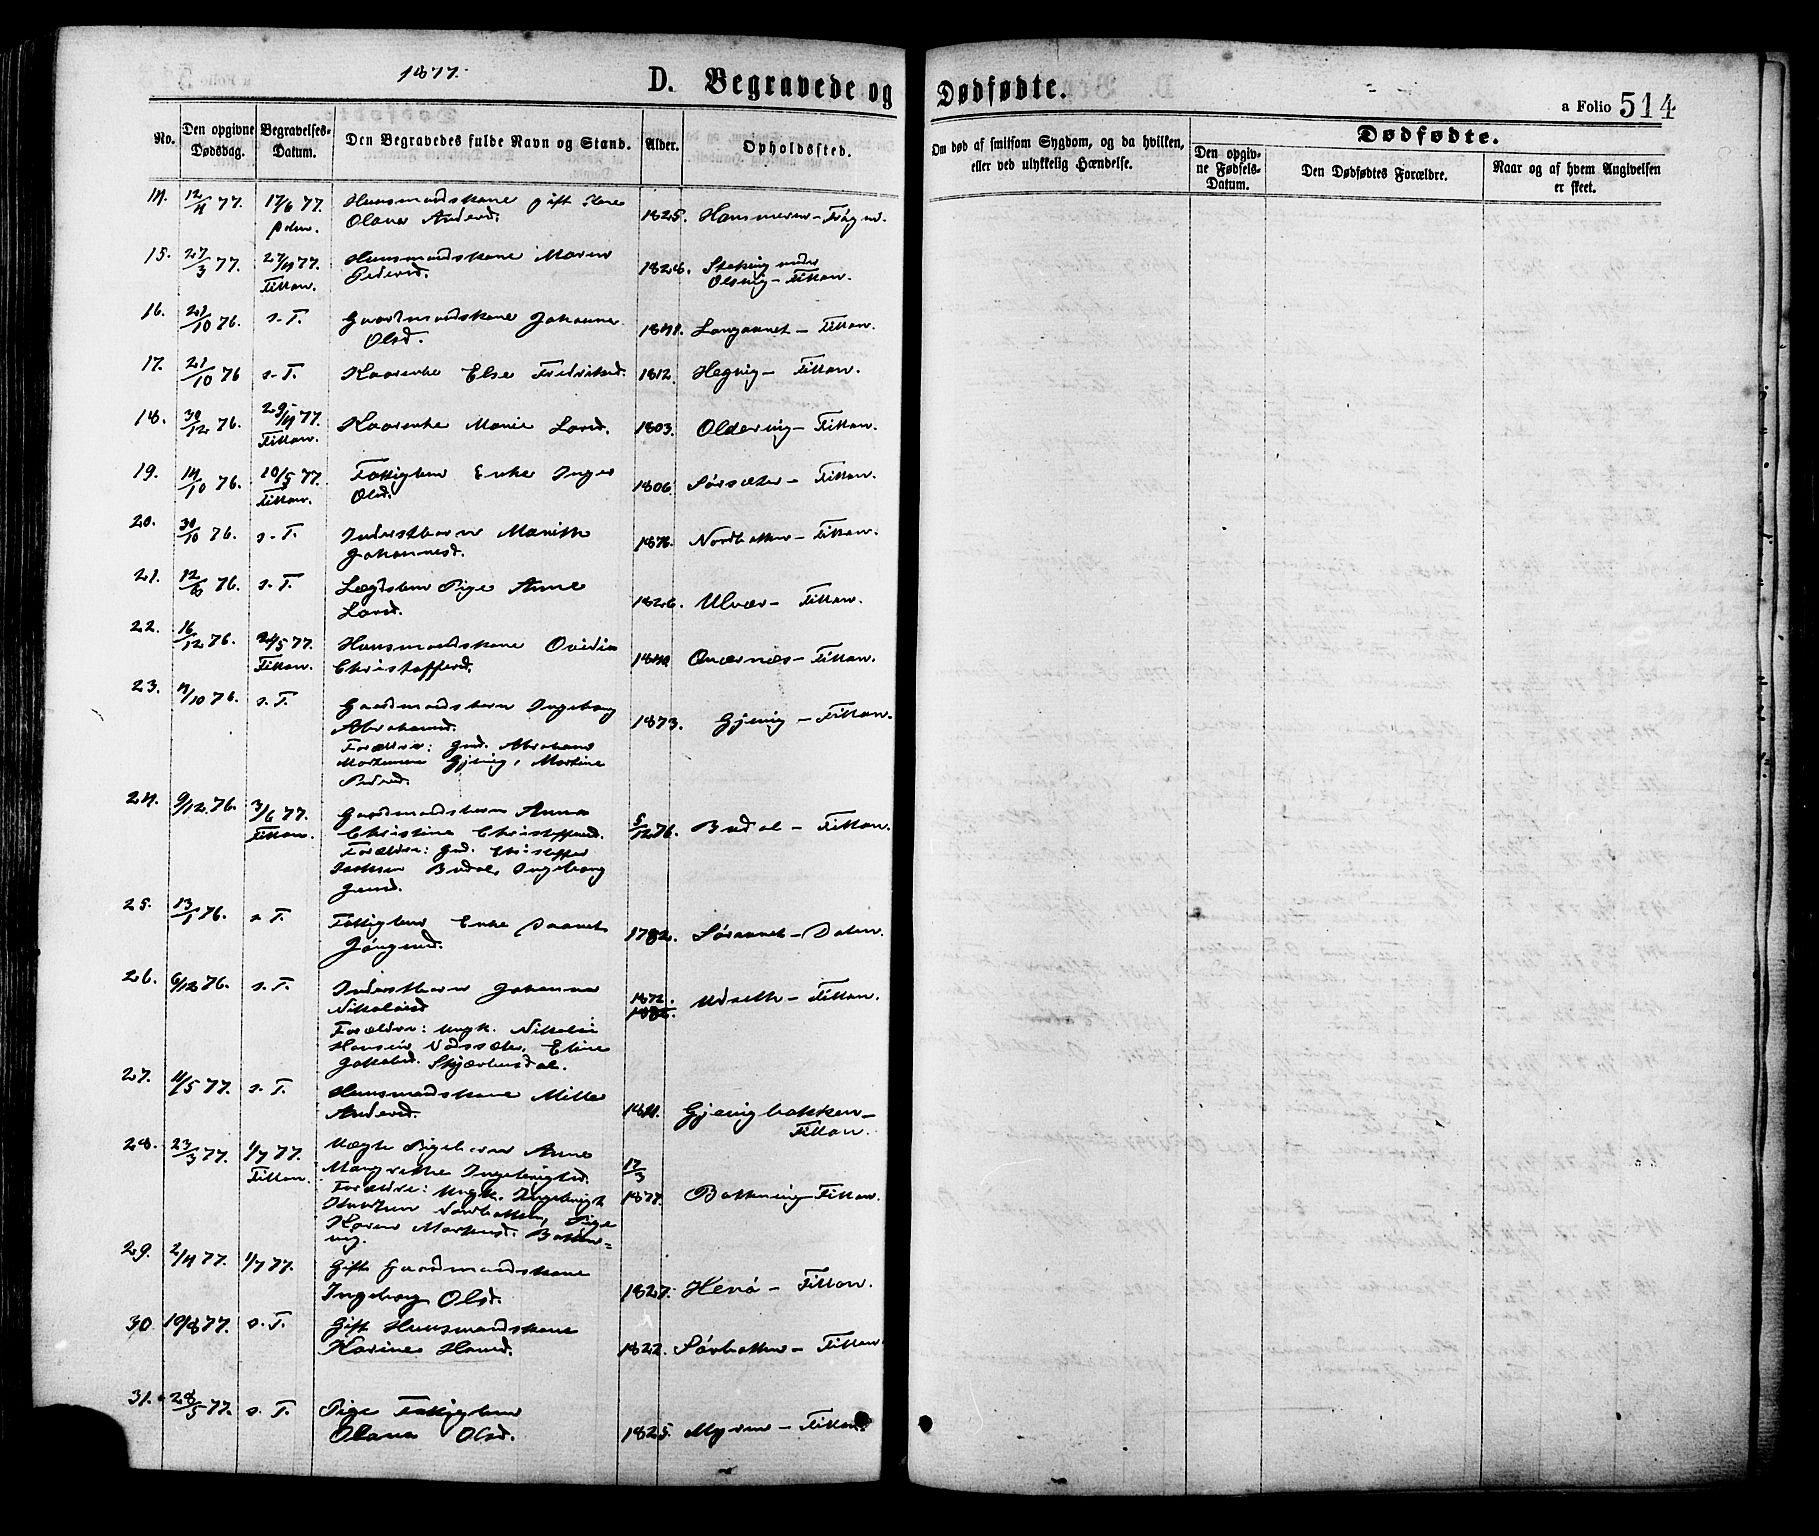 1877.
D. Begravede og
Dødfødte.
a Folio 514
No.
Den opgivne Dødsdag.
Begravelses-Datum.
Den Begravedes fulde Navn og Stand.
Alder.
Opholdssted.
Om død af smitsom Sygdom, og da hvilken,
eller ved ulykkelig Hændelse.
Dødfødte.
Den opgiv-
ne Fødsels-
Datum.
Den Dødfødtes Forældre.
Naar og af hvem Angivelsen
er skeet.
14. 12/4 77. 17/6 77. Huusmandskone gift
Olava Andersd. 1825.
15. 27/3 77. 27/4 77. Huusmandskone Maren
Fillan. Pedersd. 1826. under
Olsvig - Fillan.
16. 21/10 76. s. T. Gaardmandskone Johanna
Olsd. 1841. Langvanet - Fillan.
17. 21/10 76 s. T. Kaarenke Else Fredriksd. 1812. Hegvig - Fillan.
18. 30/12 76. 29/4 77. Kaarenke Marie Larsd. 1803. Oldervig - Fillan.
Fillan.
19. 14/10 76. 10/5 77. Fattiglem Enke Inger
Fillan. Olsd. 1806. Sørsæter - Fillan.
20. 30/10 76. s. T. Inderstbarn Marith
Johannesd. 1876. Nordbotten - Fillan.
21. 12/10 76. s. T. Lægdslem Pige Anne
Larsd. 1826. Ulvær - Fillan.
22. 16/12 76. 24/5 77. Huusmandskone Ovidia
Fillan. Christoffersd. 1840. Qværnæs - Fillan.
23. 4/10 76. s. T. Gaardmandsbarn Ingeborg
Abrahamsd. 1873. Gjevig - Fillan.
Forældre: Gmd. Abraham
Mortensen Gjevig, Martine
Pedersd.
24. 9/12 76. 3/6 77. Gaardmandsbarn Anna
Fillan. Christine Christoffersd. 5/12 76. Budal - Fillan.
Forældre: Gmd. Christoffer
Budal, Ingeborg
Jensd.
25. 13/1 76. s. T. Fattiglem Enke
Jørgensd. 1782. Søravnet - Dolm.
26. 6/12 76. s. T. Inderstbarn Johanna
Nikolaisd. 1872. Udseth - Fillan.
Forældre: Ungk. Nikolai
Hansen Vadssæter, Eline
Jakobsd. Skjærbusdal.
27. 11/5 77. s. T. Huusmandskone Mille
Andersd. 1841. Gjevigbakken -
Fillan.
28. 23/3 77. 1/7 77. Uægte Pigebarn Anne
Fillan. Margrethe Ingebrigtsd. 17/3 1877. Botnvig - Fillan.
Forældre: Ungk. Ingebrigt
Nordbotten, Pige
Karen Martinsd. Botn-
vig.
29. 2/4 77. 1/7 77. Gift Gaardmandskone
Ingeborg Olsd. 1827. Hevø - Fillan.
30. 19/4 77. s. T. Gift Huusmandskone
Karine Hansd. 1822. Sørbotten - Fillan
31. 28/5 77. s. T. Pige Fattiglem
Olava Olsd. 1825. Myren - Fillan.